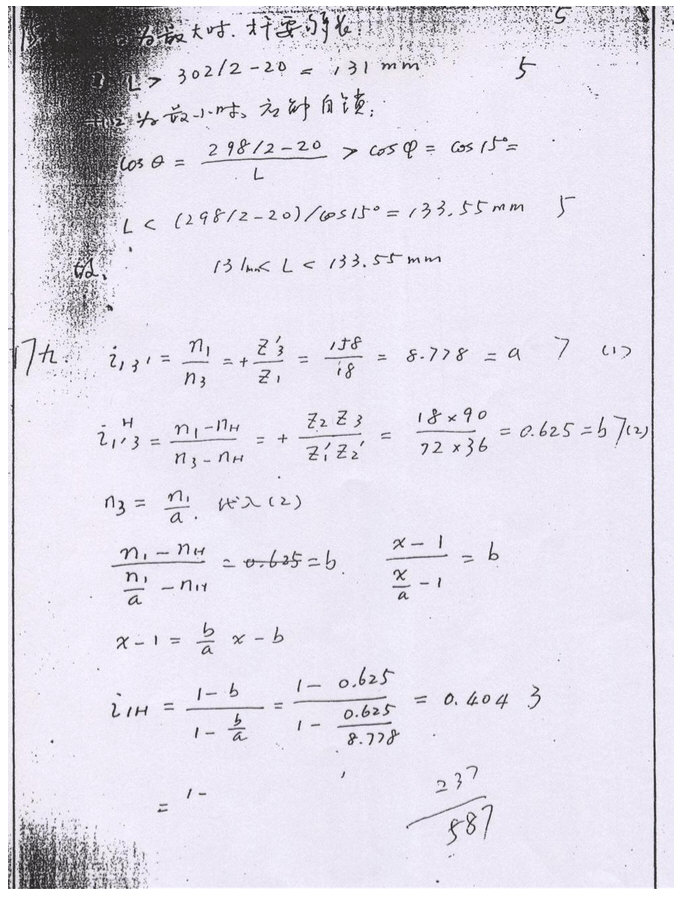 为最大时.杆要够长 5
L > 302/2-20 = 131 mm 5
为最小时。之够自锁;
cosθ = (298/2-20)/L > cosφ = cos15°=
L < (298/2-20)/cos15° = 133.55 mm 5
故、 131mm< L < 133.55 mm
九. i₁₃' = n₁/n₃ = + z'₃/z₁ = 158/18 = 8.778 = a 7 (1)
i₁'₃ᴴ = (n₁-nH)/(n₃-nH) = + (z₂z₃)/(z₁'z₂') = (18×90)/(72×36) = 0.625 = b 7(2)
n₃ = n₁/a. 代入(2)
(n₁-nH)/(n₁/a - nH) = 0.625 = b. (x-1)/(x/a - 1) = b
x-1 = b/a x-b
i₁H = (1-b)/(1-b/a) = (1-0.625)/(1-0.625/8.778) = 0.404 3
= 1-
237/587